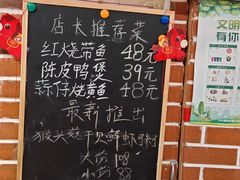 店长推荐菜
红烧带鱼 48元
陈皮鸭煲 39元
蒜仔烧黄鱼 48元
最新推出
猴头菇干贝鲜虾
大份 108
小份 88
文明
有你